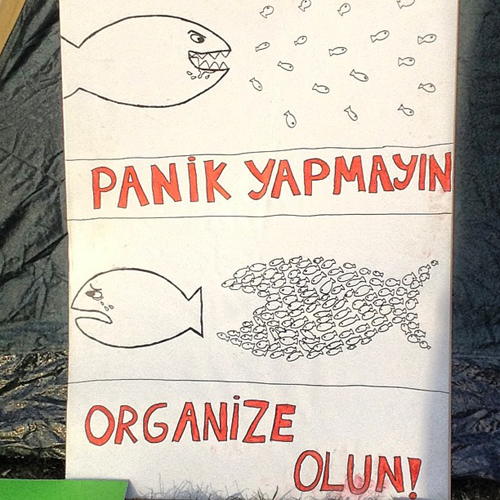 PANİK YAPMAYIN
ORGANİZE
OLUN!